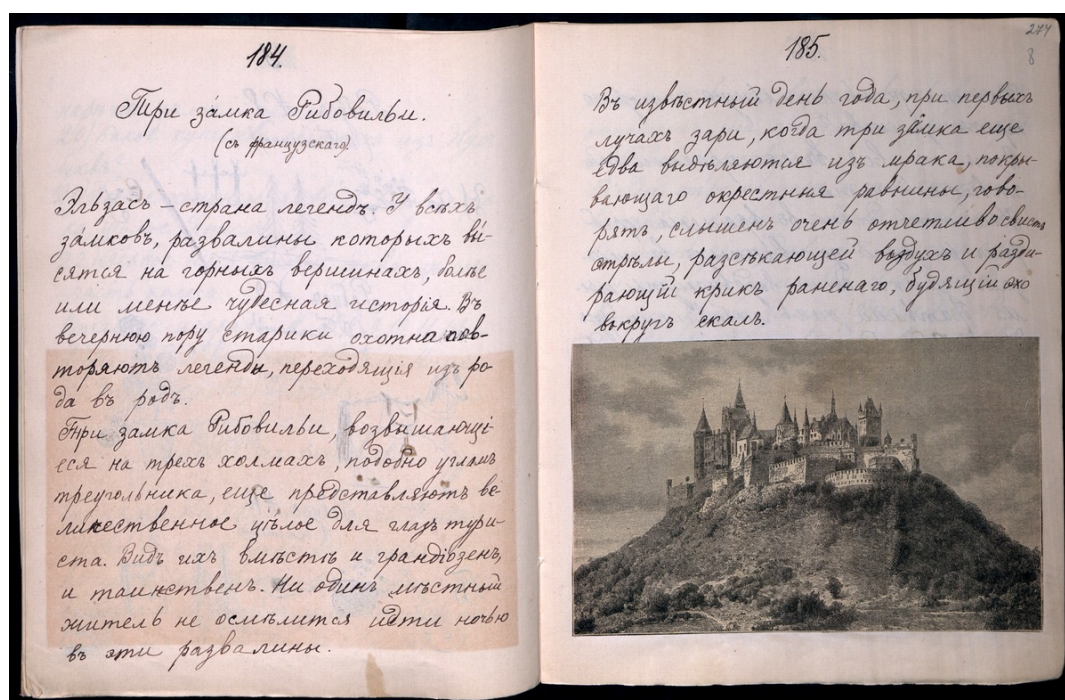 184.
Три за́мка Рибовильи.
(съ французскаго)
Эльзасъ – страна легендъ. У всѣхъ
за́мковъ, развалины которыхъ вы-
сятся на горныхъ вершинахъ, болѣе
или менѣе чудесная исторія. Въ
вечернюю пору старики охотно пов-
торяютъ легенды, переходящія изъ ро-
да въ родъ.
Три замка Рибовильи, возвышающі-
еся на трехъ холмахъ, подобно угламъ
треугольника, еще представляютъ ве-
личественное цѣлое для глазъ тури-
ста. Видъ ихъ вмѣстѣ и грандіозенъ,
и таинственъ. Ни одинъ мѣстный
житель не осмѣлится идти ночью
въ эти развалины.
274
8
185.
Въ извѣстный день года, при первыхъ
лучахъ зари, когда три за́мка еще
едва выдѣляются изъ мрака, покры-
вающаго окрестныя равнины, гово-
рятъ, слышенъ очень отчетливо свистъ
стрѣлы, разсѣкающей воздухъ и разди-
рающій крикъ раненаго, будящій эхо
вокругъ скалъ.